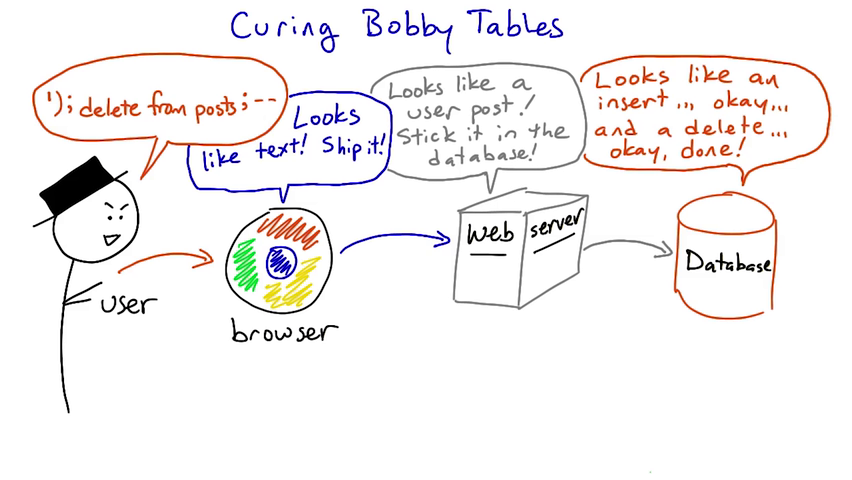 Curing Bobby Tables
'); delete from posts; --
Looks
like text! Ship it!
Looks like a
user post!
Stick it in the
database!
Looks like an
insert ... okay...
and a delete ...
okay, done!
user
browser
web server
Database